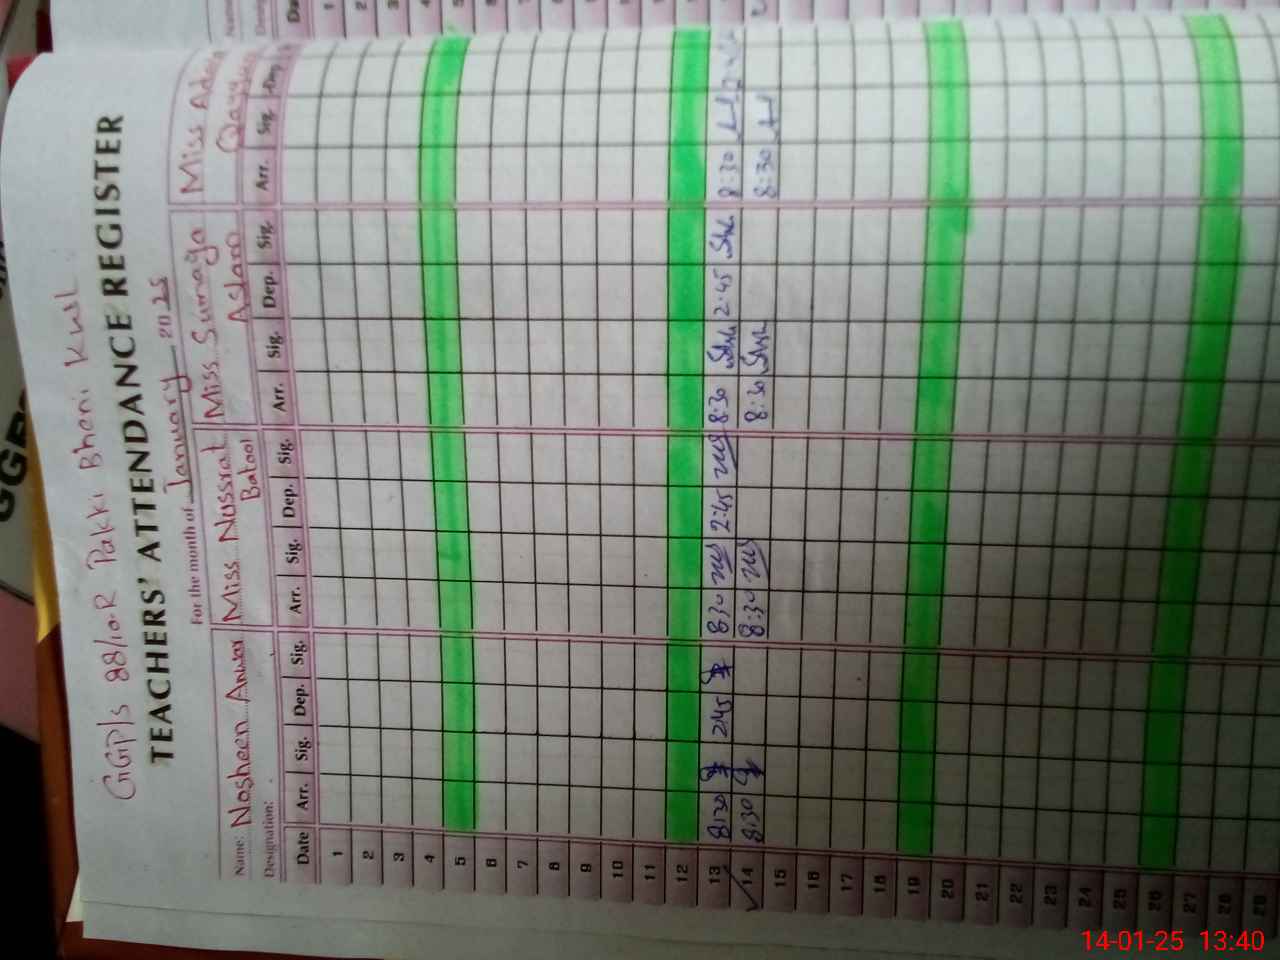 GGP/s 88/10.R Pakki Bheni Kwl
TEACHERS' ATTENDANCE REGISTER
For the month of January 2025
Name: Nosheen Anwar Miss Nussrat Batool Miss Sumaya Aslam Miss
Designation:
Date Arr. Sig. Dep. Sig. Arr. Sig. Dep. Sig. Arr. Sig. Dep. Sig. Arr. Sig. Dep.
1
2
3
4
5
6
7
8
9
10
11
12
13 8:30 2:45 8:30 2:45 8:30 2:45 8:30
14 8:30 8:30 8:30 8:30
15
16
17
18
19
20
21
22
23
24
25
26
27
28
29
14-01-25 13:40